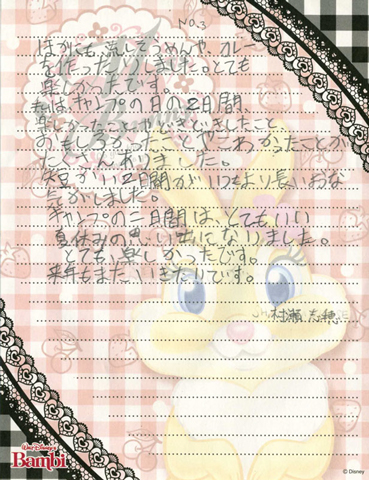 NO.3
ほかにも、流しそうめんや、カレー
を作ったりしました。とても
楽しかったです。
私は、キャンプの月の2日間、
楽しかったことや、いきどきしたこと、
おもしろかったことやこわかったことが
たくさんありました。
短かい2日間がいつもより長いおな
だがしました。
キャンプの二日間は、とてもいい
夏休みの思い出になりました。
とても楽しかったです。
来年もまたいきたいです。
村瀬 志穂
WALT DISNEY'S
Bambi
© Disney